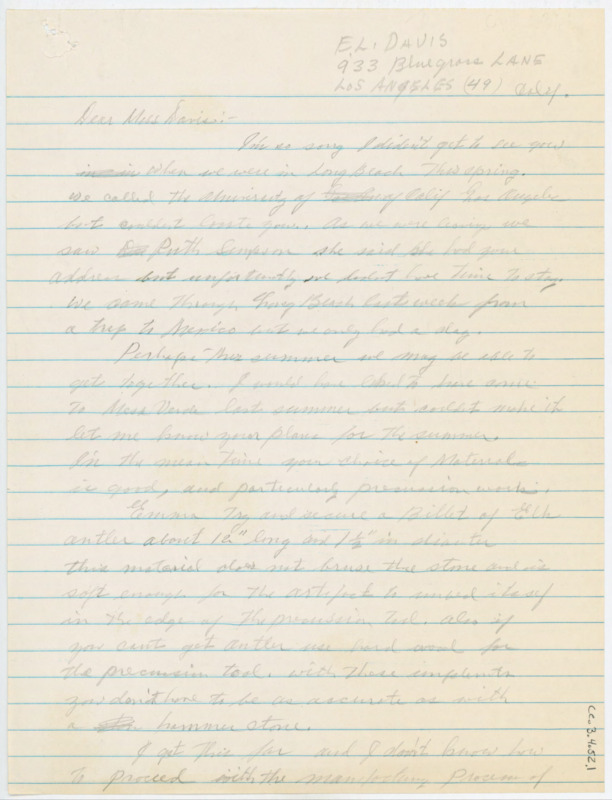 E.L. DAVIS
933 Bluegrass LANE
LOS ANGELES (49) Calif.
Dear Miss Davis:-
I'm so sorry I didn't get to see you
when we were in Long Beach this spring.
we called the University of Calif Los Angeles
but couldnt locate you. As we were leaving we
saw Ruth Simpson she said she had your
address but unfortunitly we didnt have time to stay.
We came through Long Beach last week from
a trip to Mexico but we only had a day.
Perhaps this summer we may be able to
get together. I would have liked to have come
to Mesa Verde last summer but couldnt make it
let me know your plans for the summer.
In the mean time your choice of Materials
is good, and particularly percussion work.
Emma Try and secure a Billet of Elk
antler about 12" long and 1½" in diameter
this material does not bruse the stone and is
soft enough for the artifact to imbed itself
in the edge of the percussion tool. also if
you cant get antler use hard wood for
the percussion tool. with these implements
you don't have to be as accurate as with
a hammer stone.
I get this far and I don't know how
to proceed with the manufacturing Process of
cc-3.4.52.1